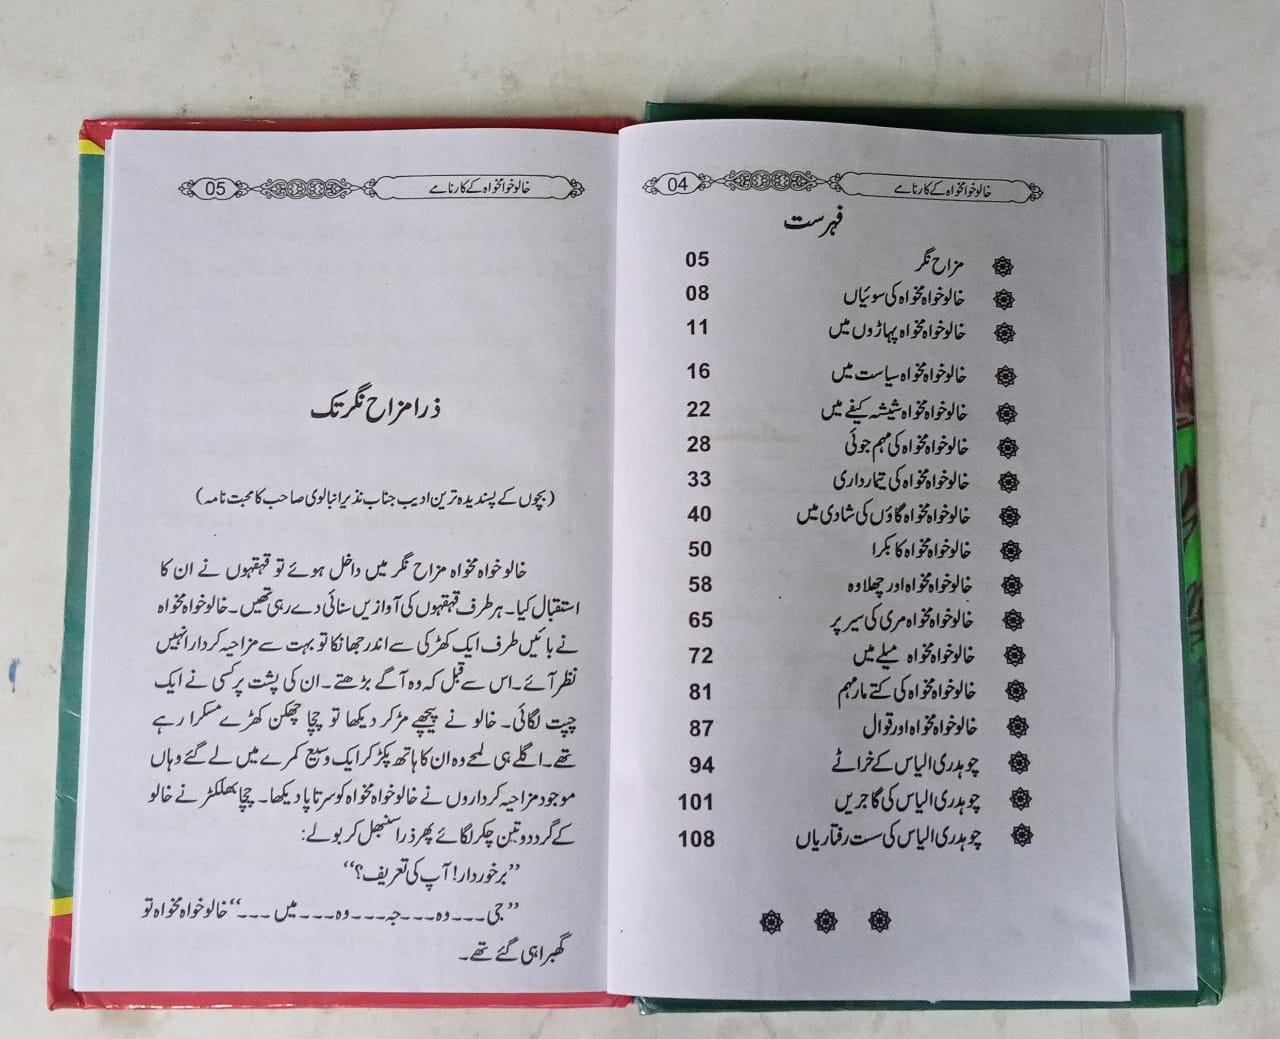 خالو خوامخواہ کے کارنامے 04
فہرست
مزاح نگر 05
خالو خواہ مخواہ کی سوئیاں 08
خالو خواہ مخواہ پہاڑوں میں 11
خالو خواہ مخواہ سیاست میں 16
خالو خواہ مخواہ شیشہ کیفے میں 22
خالو خواہ مخواہ کی مہم جوئی 28
خالو خواہ مخواہ کی تیمارداری 33
خالو خواہ مخواہ گاؤں کی شادی میں 40
خالو خواہ مخواہ کا بکرا 50
خالو خواہ مخواہ اور چھلاوہ 58
خالو خواہ مخواہ مری کی سیر پر 65
خالو خواہ مخواہ میلے میں 72
خالو خواہ مخواہ کی کتے مار مہم 81
خالو خواہ مخواہ اور قوال 87
چوہدری الیاس کے خراٹے 94
چوہدری الیاس کی گاجریں 101
چوہدری الیاس کی سست رفتاریاں 108
خالو خوامخواہ کے کارنامے 05
ذرا مزاح نگر تک
(بچوں کے پسندیدہ ترین ادیب جناب نذیر انبالوی صاحب کا محبت نامہ)
خالو خواہ مخواہ مزاح نگر میں داخل ہوئے تو قہقہوں نے ان کا
استقبال کیا۔ ہر طرف قہقہوں کی آوازیں سنائی دے رہی تھیں۔ خالو خواہ مخواہ
نے بائیں طرف ایک کھڑکی سے اندر جھانکا تو بہت سے مزاحیہ کردار انہیں
نظر آئے۔ اس سے قبل کہ وہ آگے بڑھتے۔ ان کی پشت پر کسی نے ایک
چپت لگائی۔ خالو نے پیچھے مڑ کر دیکھا تو چچا چھکن کھڑے مسکرا رہے
تھے۔ اگلے ہی لمحے وہ ان کا ہاتھ پکڑ کر ایک وسیع کمرے میں لے گئے وہاں
موجود مزاحیہ کرداروں نے خالو خواہ مخواہ کو سرتاپا دیکھا۔ چچا بھلکڑ نے خالو
کے گرد دو تین چکر لگائے پھر ذرا سنبھل کر بولے:
”برخوردار! آپ کی تعریف؟“
”جی۔۔۔وہ۔۔۔جہ۔۔۔وہ۔۔۔میں۔۔۔“ خالو خواہ مخواہ تو
گھبرا ہی گئے تھے۔